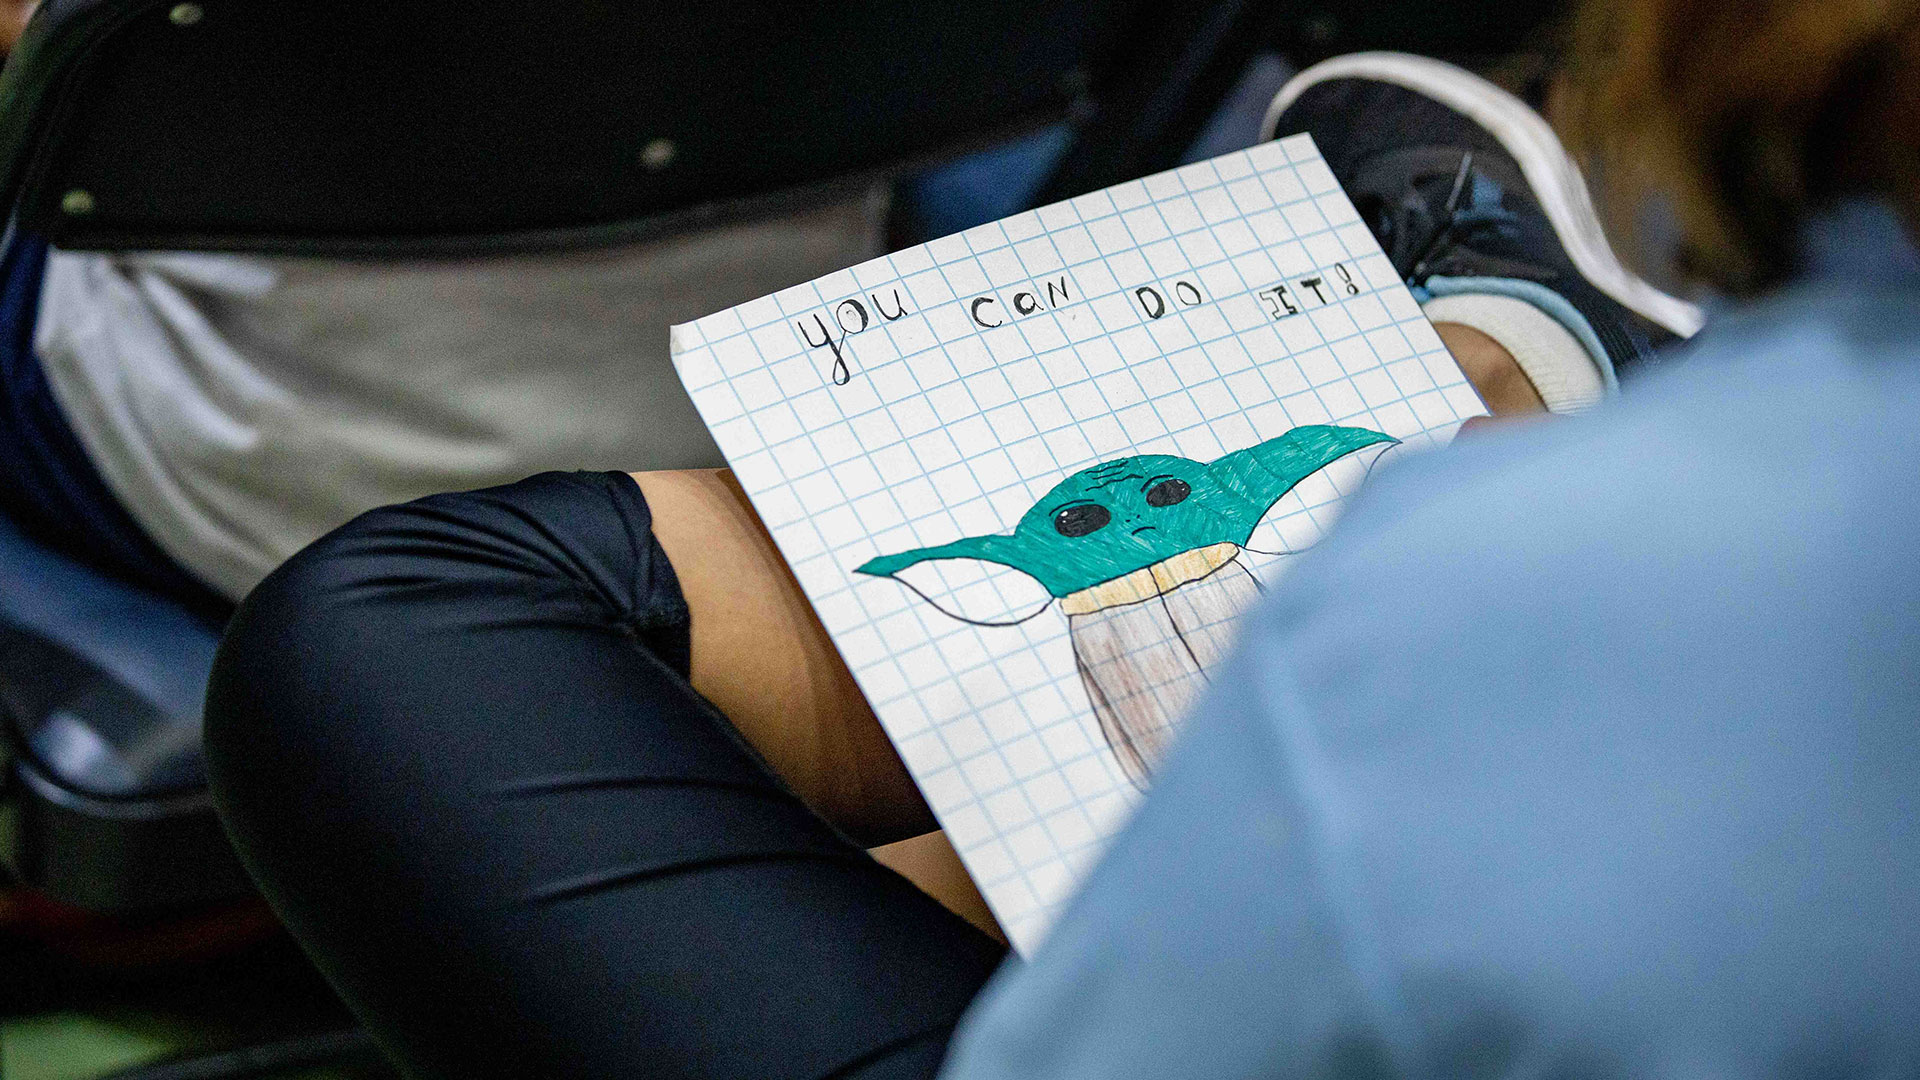 you can DO IT!